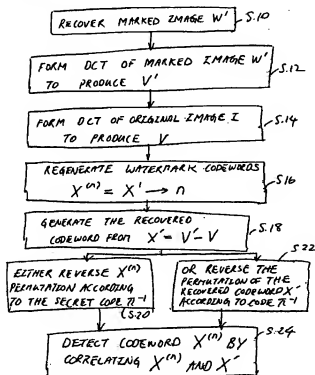 RECOVER MARKED IMAGE W'
S.10
FORM DCT OF MARKED IMAGE W'
TO PRODUCE V'
S.12
FORM DCT OF ORIGINAL IMAGE I
TO PRODUCE V
S.14
REGENERATE WATERMARK CODEWORDS
X(n) = X' → n
S16
GENERATE THE RECOVERED
CODEWORD FROM X' = V' - V
S.18
EITHER REVERSE X(n)
PERMUTATION ACCORDING
TO THE SECRET CODE π-1
S.20
OR REVERSE THE
PERMUTATION OF THE
RECOVERED CODEWORD X'
ACCORDING TO CODE π-1
S.22
DETECT CODEWORD X(n) BY
CORRELATING X(n) AND X'
S.24